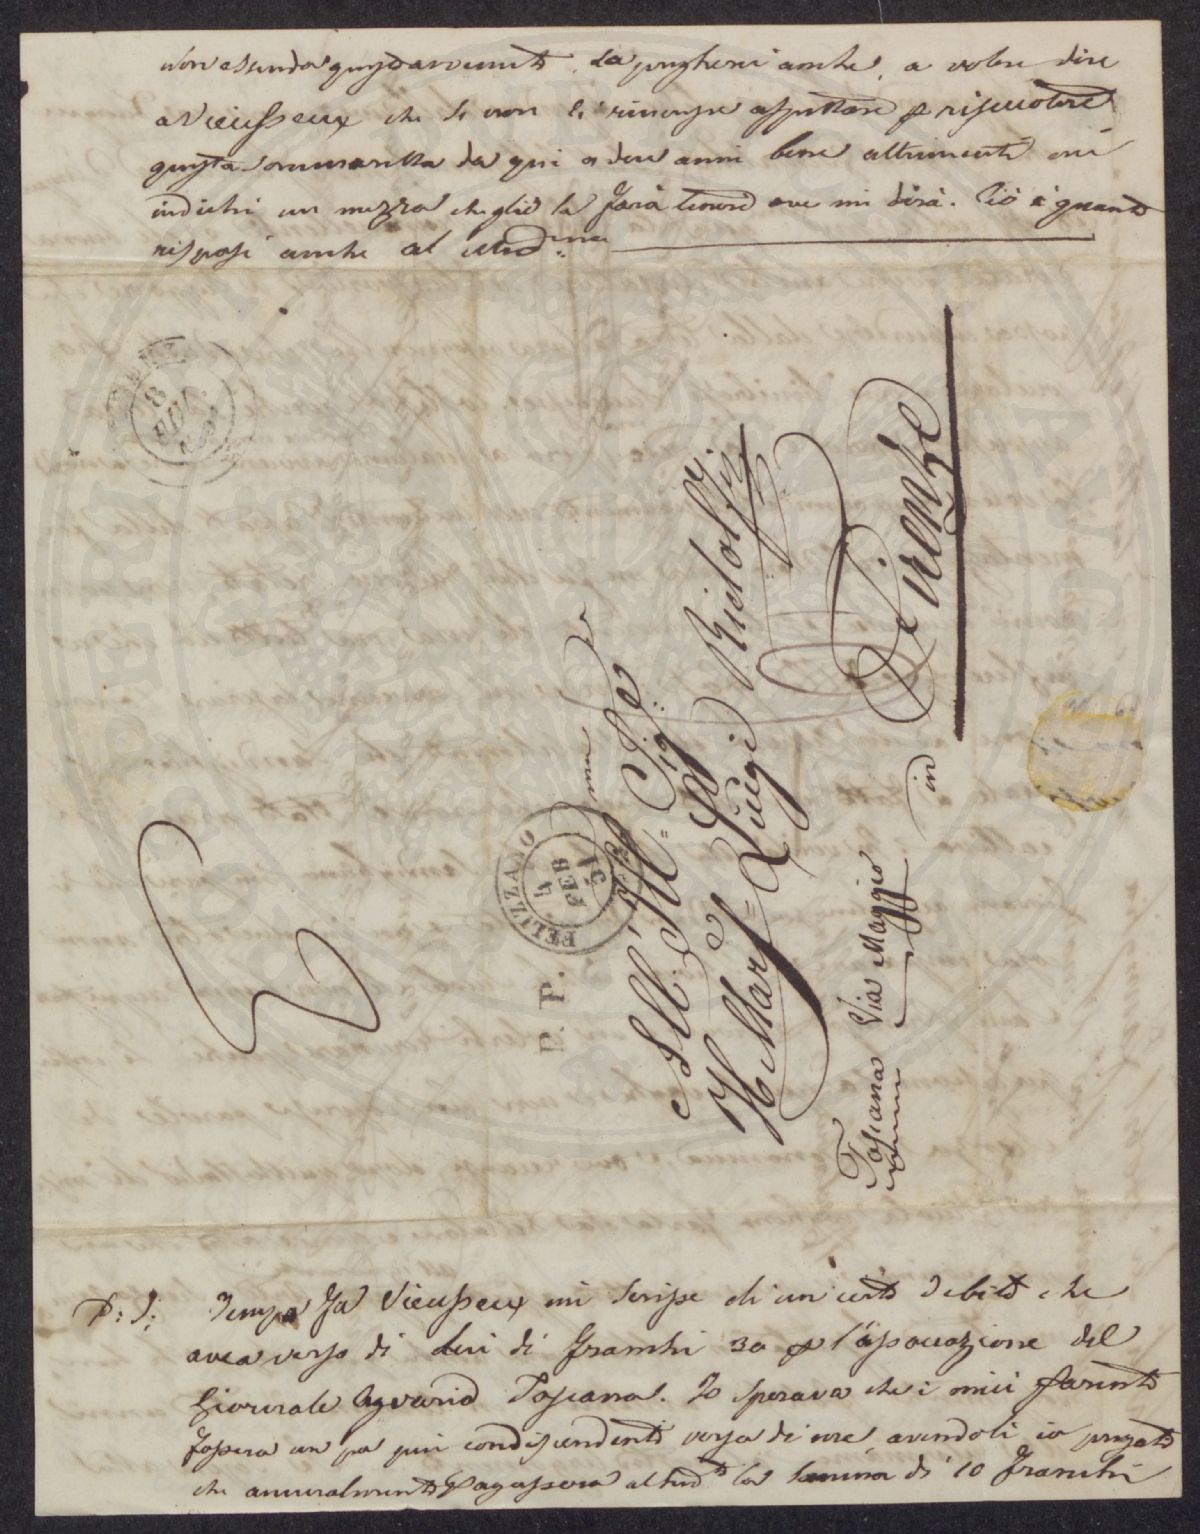 non essendo questo avvenuto, La pregherei anche, a voler dire
a Vieusseux che se non li rincresce aspettare p riscuotere
questa sommaretta da qui a due anni bene altrimenti mi
indichi un mezzo che gliè la farà tenere ove mi dirà. Ciò è quanto
risposi anche al
FIRENZE
8
FEB.
1851
P. P.
FELIZZANO
4
FEB
51
All' Ill.mo Sig.
Il Marse Luigi Ridolfi
Toscana Via Maggio in Firenze
P: S: Tempo fà Vieusseux mi scrisse di un certo debito che
avea verso di lui di franchi 30 p l'associazione del
Giornale Agrario Toscano. Io sperava che i miei parenti
fossero un pò più condiscendenti verso di me, avendoli io pregati
che annualmente pagassero al la somma di 10 franchi